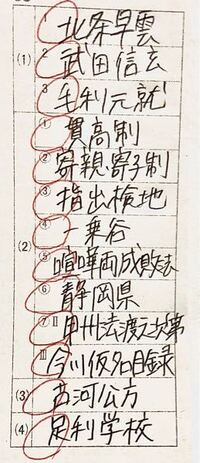 (1)
1 北条早雲
2 武田信玄
3 毛利元就
(2)
① 貫高制
② 寄親・寄子制
③ 指出検地
④ 一乗谷
⑤ 喧嘩両成敗法
⑥ 静岡県
⑦ Ⅱ 甲州法度之次第
Ⅲ 今川仮名目録
(3) 古河公方
(4) 足利学校